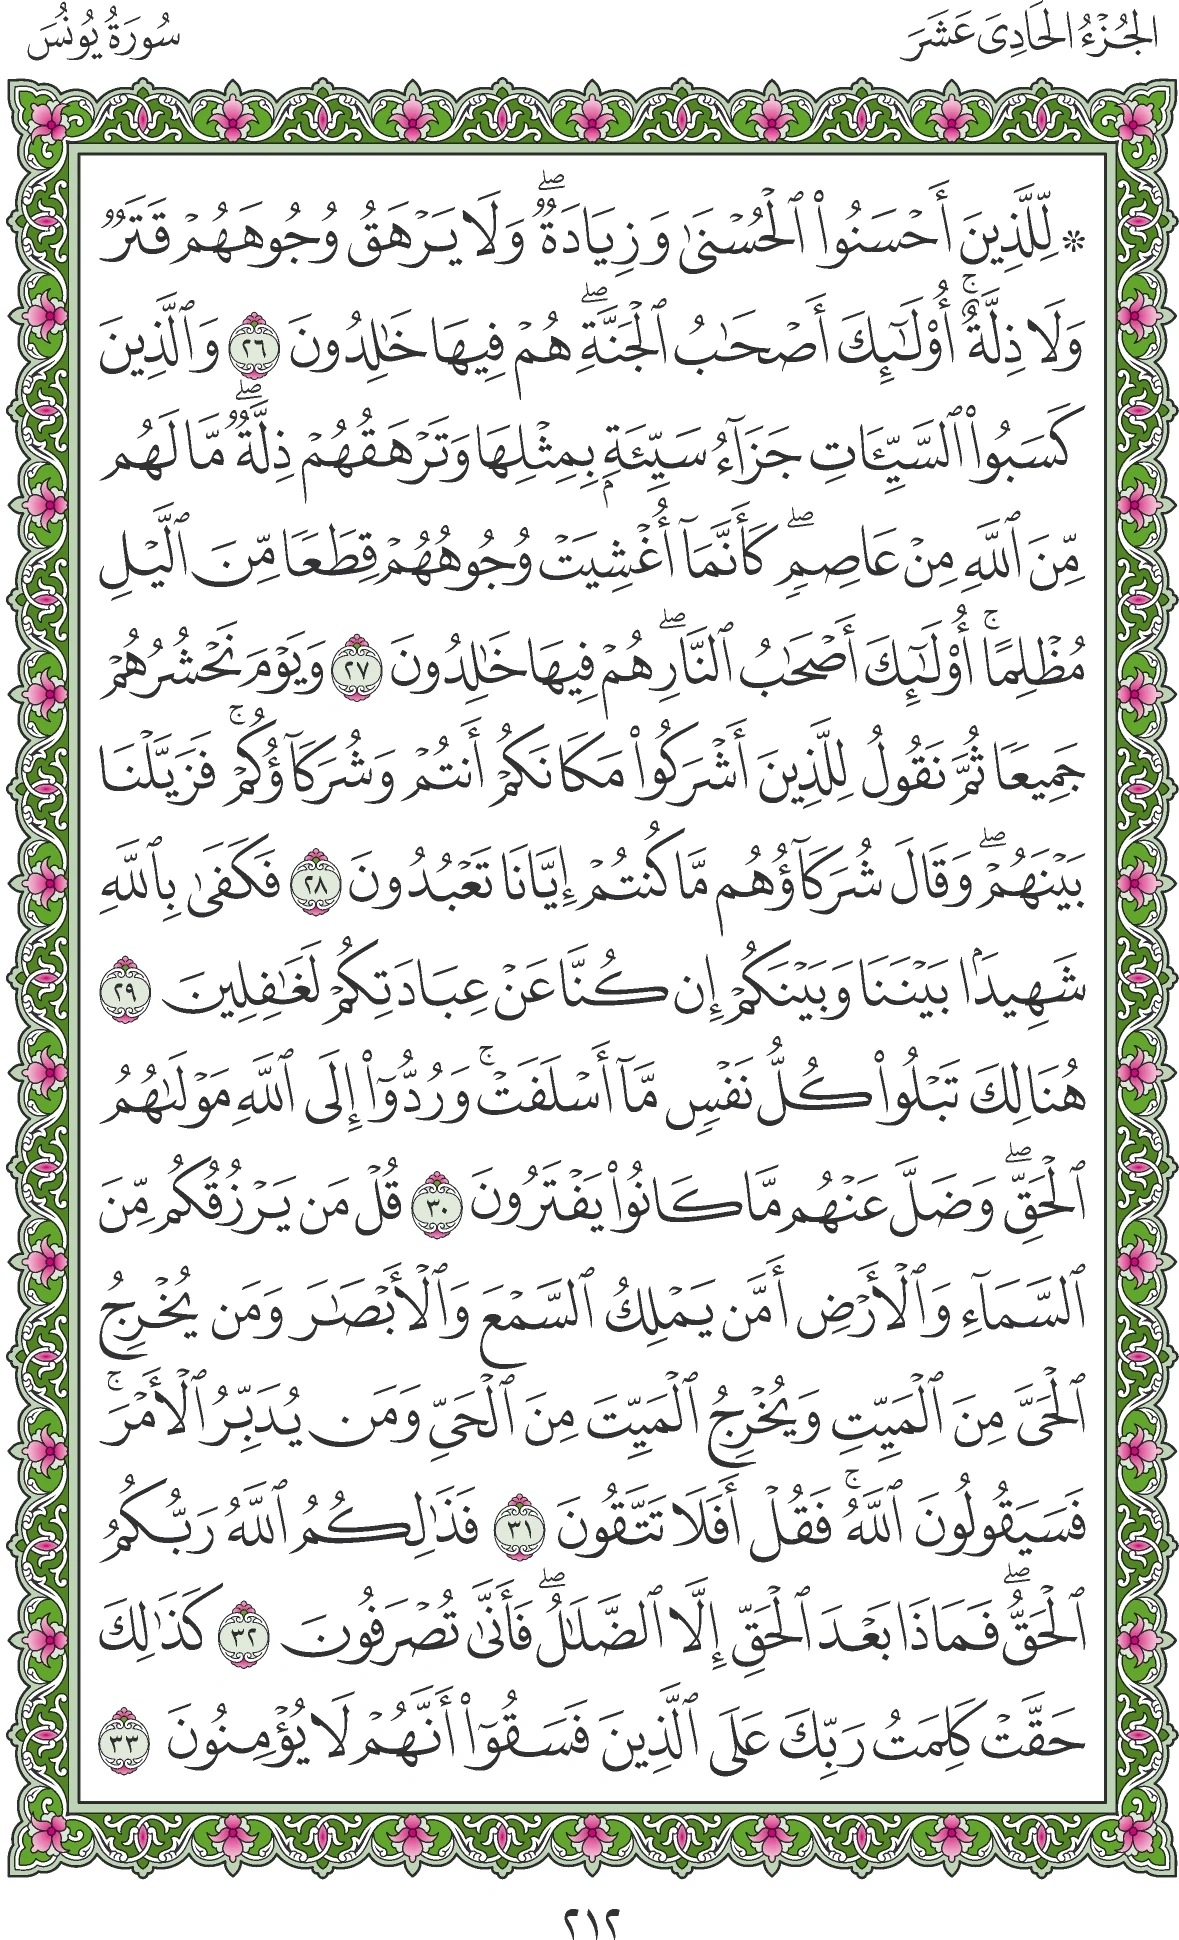 الجُزْءُ الحَادِىَ عَشَرَ
سُورَةُ يُونُسَ
۞ لِّلَّذِينَ أَحْسَنُوا۟ ٱلْحُسْنَىٰ وَزِيَادَةٌۭ ۖ وَلَا يَرْهَقُ وُجُوهَهُمْ قَتَرٌۭ
وَلَا ذِلَّةٌ ۚ أُو۟لَـٰٓئِكَ أَصْحَـٰبُ ٱلْجَنَّةِ ۖ هُمْ فِيهَا خَـٰلِدُونَ ٢٦ وَٱلَّذِينَ
كَسَبُوا۟ ٱلسَّيِّـَٔاتِ جَزَآءُ سَيِّئَةٍۭ بِمِثْلِهَا وَتَرْهَقُهُمْ ذِلَّةٌۭ ۖ مَّا لَهُم
مِّنَ ٱللَّهِ مِنْ عَاصِمٍۢ ۖ كَأَنَّمَآ أُغْشِيَتْ وُجُوهُهُمْ قِطَعًۭا مِّنَ ٱلَّيْلِ
مُظْلِمًا ۚ أُو۟لَـٰٓئِكَ أَصْحَـٰبُ ٱلنَّارِ ۖ هُمْ فِيهَا خَـٰلِدُونَ ٢٧ وَيَوْمَ نَحْشُرُهُمْ
جَمِيعًۭا ثُمَّ نَقُولُ لِلَّذِينَ أَشْرَكُوا۟ مَكَانَكُمْ أَنتُمْ وَشُرَكَآؤُكُمْ ۚ فَزَيَّلْنَا
بَيْنَهُمْ ۖ وَقَالَ شُرَكَآؤُهُم مَّا كُنتُمْ إِيَّانَا تَعْبُدُونَ ٢٨ فَكَفَىٰ بِٱللَّهِ
شَهِيدًۢا بَيْنَنَا وَبَيْنَكُمْ إِن كُنَّا عَنْ عِبَادَتِكُمْ لَغَـٰفِلِينَ ٢٩
هُنَالِكَ تَبْلُوا۟ كُلُّ نَفْسٍۢ مَّآ أَسْلَفَتْ ۚ وَرُدُّوٓا۟ إِلَى ٱللَّهِ مَوْلَىٰهُمُ
ٱلْحَقِّ ۖ وَضَلَّ عَنْهُم مَّا كَانُوا۟ يَفْتَرُونَ ٣٠ قُلْ مَن يَرْزُقُكُم مِّنَ
ٱلسَّمَآءِ وَٱلْأَرْضِ أَمَّن يَمْلِكُ ٱلسَّمْعَ وَٱلْأَبْصَـٰرَ وَمَن يُخْرِجُ
ٱلْحَىَّ مِنَ ٱلْمَيِّتِ وَيُخْرِجُ ٱلْمَيِّتَ مِنَ ٱلْحَىِّ وَمَن يُدَبِّرُ ٱلْأَمْرَ ۚ
فَسَيَقُولُونَ ٱللَّهُ ۚ فَقُلْ أَفَلَا تَتَّقُونَ ٣١ فَذَٰلِكُمُ ٱللَّهُ رَبُّكُمُ
ٱلْحَقُّ ۖ فَمَاذَا بَعْدَ ٱلْحَقِّ إِلَّا ٱلضَّلَـٰلُ ۖ فَأَنَّىٰ تُصْرَفُونَ ٣٢ كَذَٰلِكَ
حَقَّتْ كَلِمَتُ رَبِّكَ عَلَى ٱلَّذِينَ فَسَقُوٓا۟ أَنَّهُمْ لَا يُؤْمِنُونَ ٣٣
٢١٢